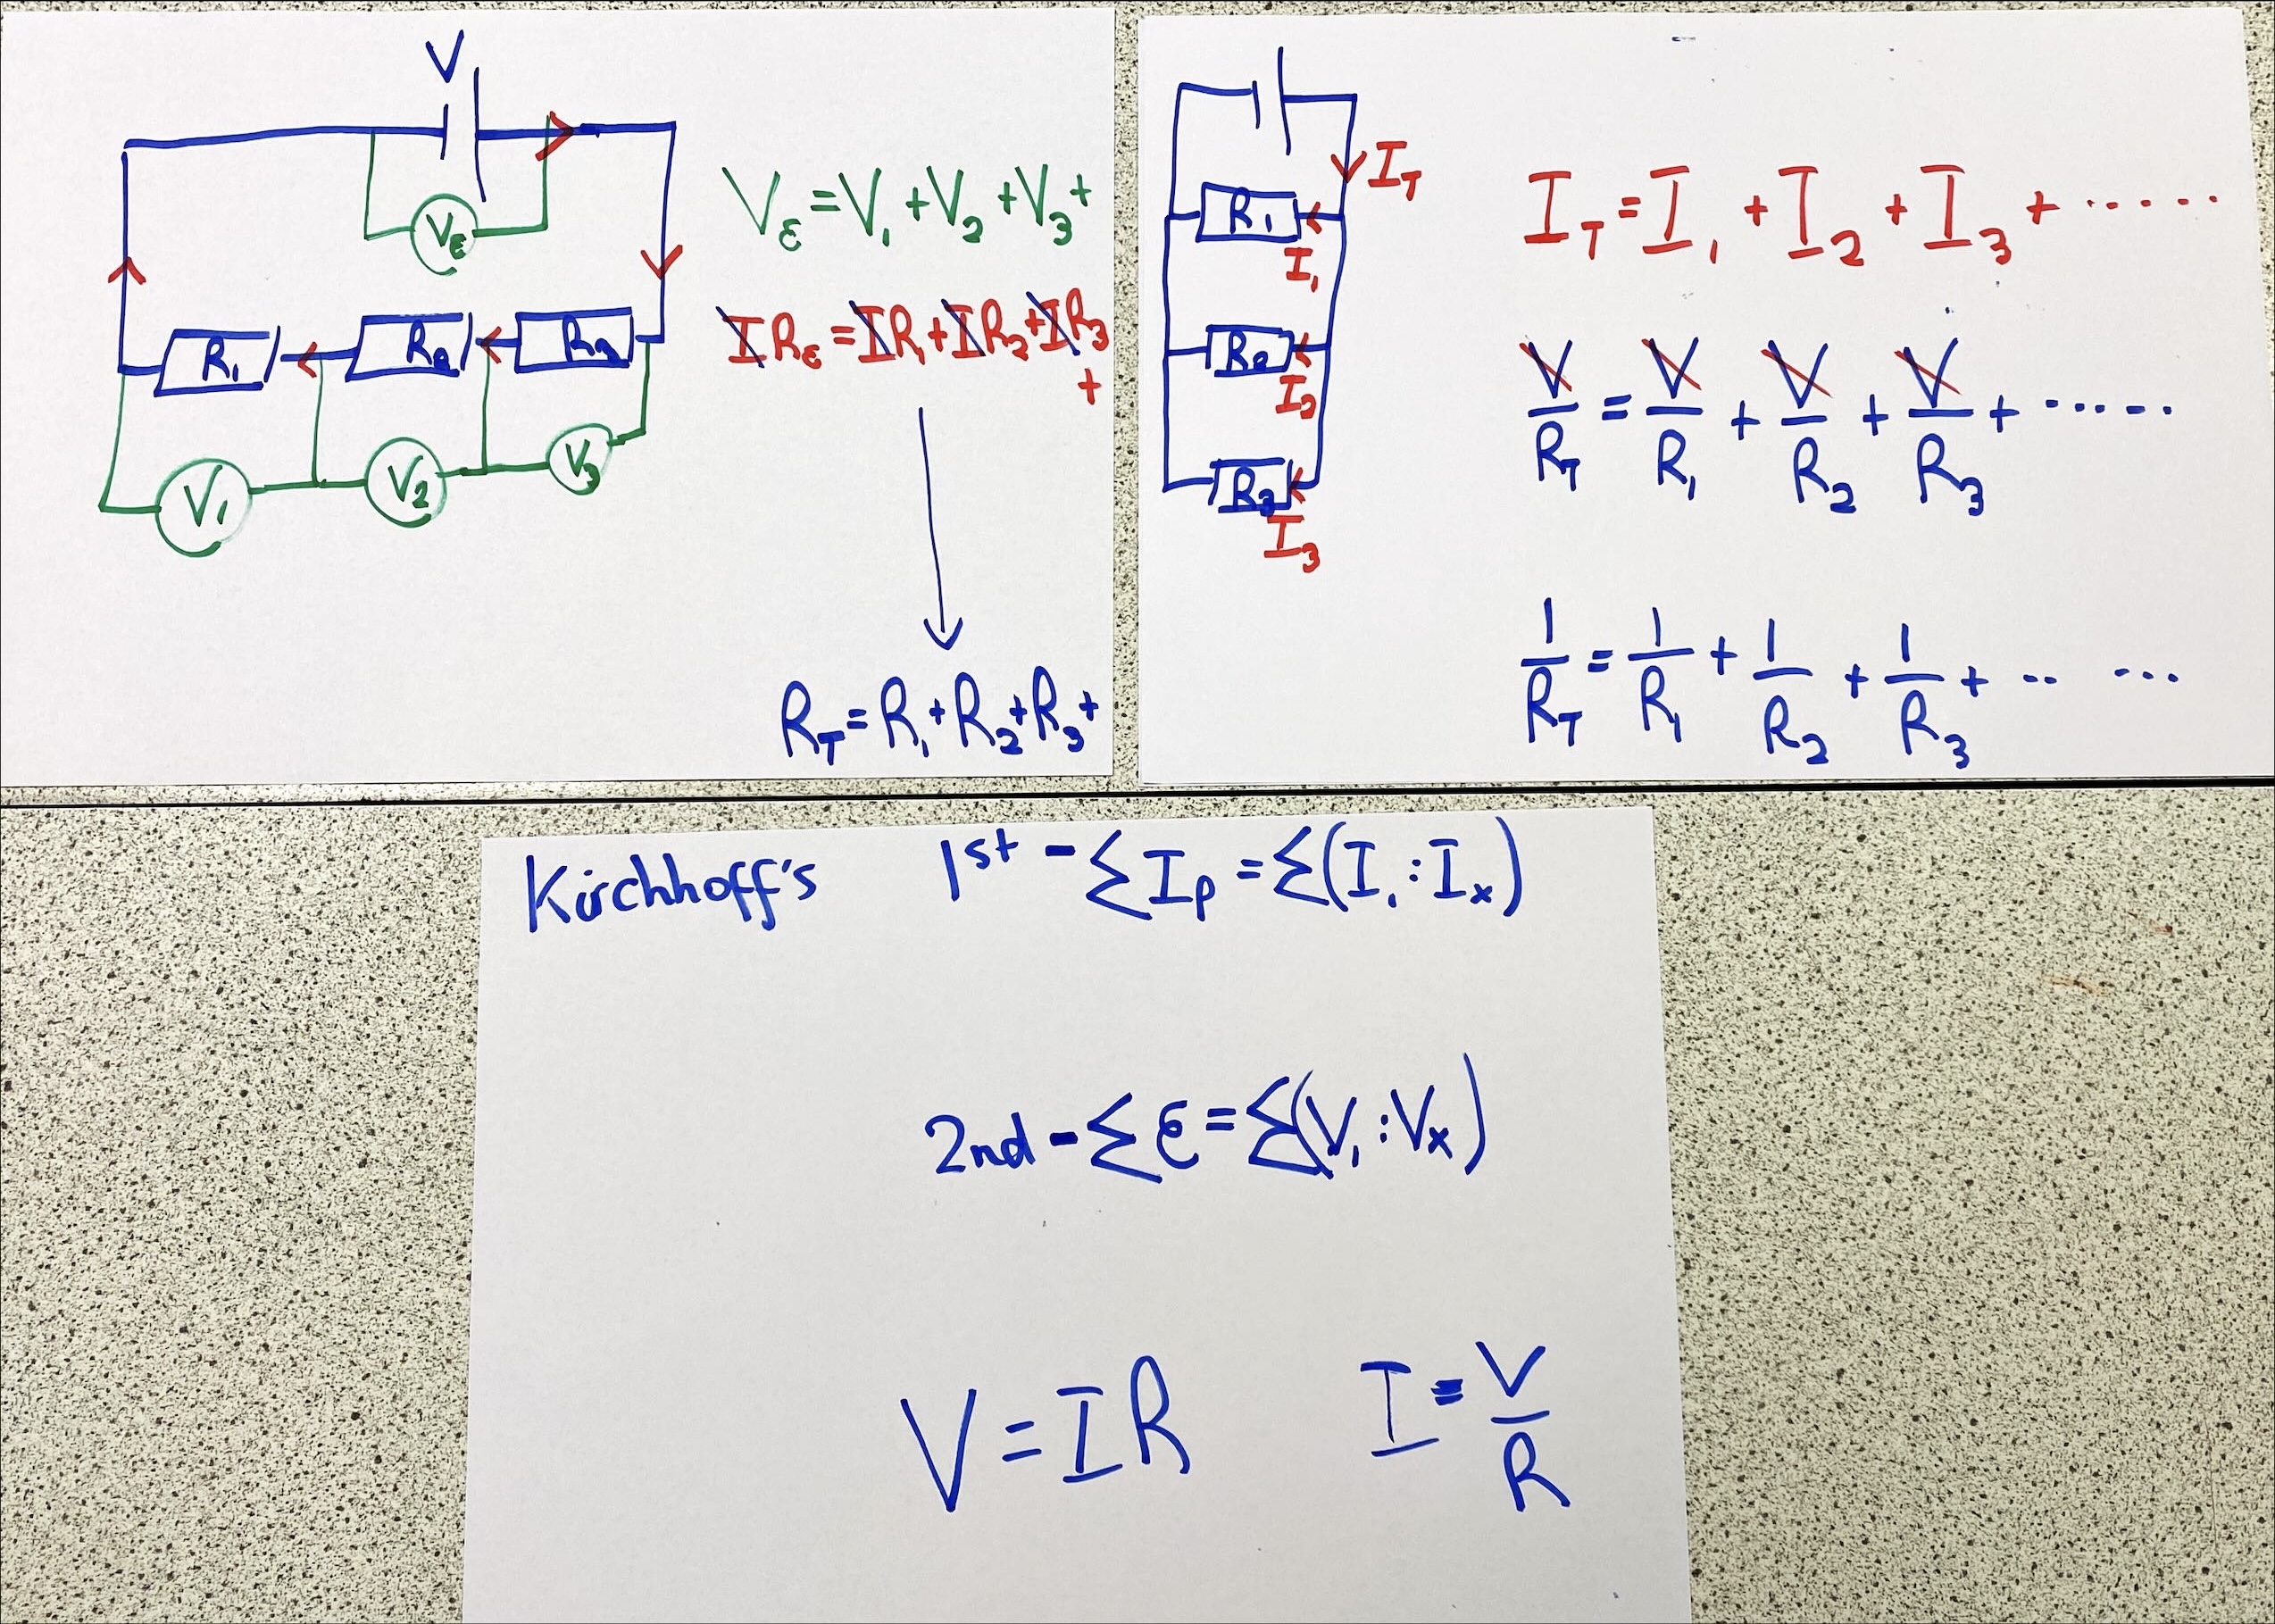 V
Vε
R₁ R₂ R₃
V₁ V₂ V₃
Vε = V₁ + V₂ + V₃ +
IRε = IR₁ + IR₂ + IR₃ +
R_T = R₁ + R₂ + R₃ +
I_T
R₁
I₁
R₂
I₂
R₃
I₃
I_T = I₁ + I₂ + I₃ + ......
V/R_T = V/R₁ + V/R₂ + V/R₃ + ......
1/R_T = 1/R₁ + 1/R₂ + 1/R₃ + .. ...
Kirchhoff's 1st - ΣI_p = Σ(I₁:Iₓ)
2nd - Σε = Σ(V₁:Vₓ)
V = IR I = V/R